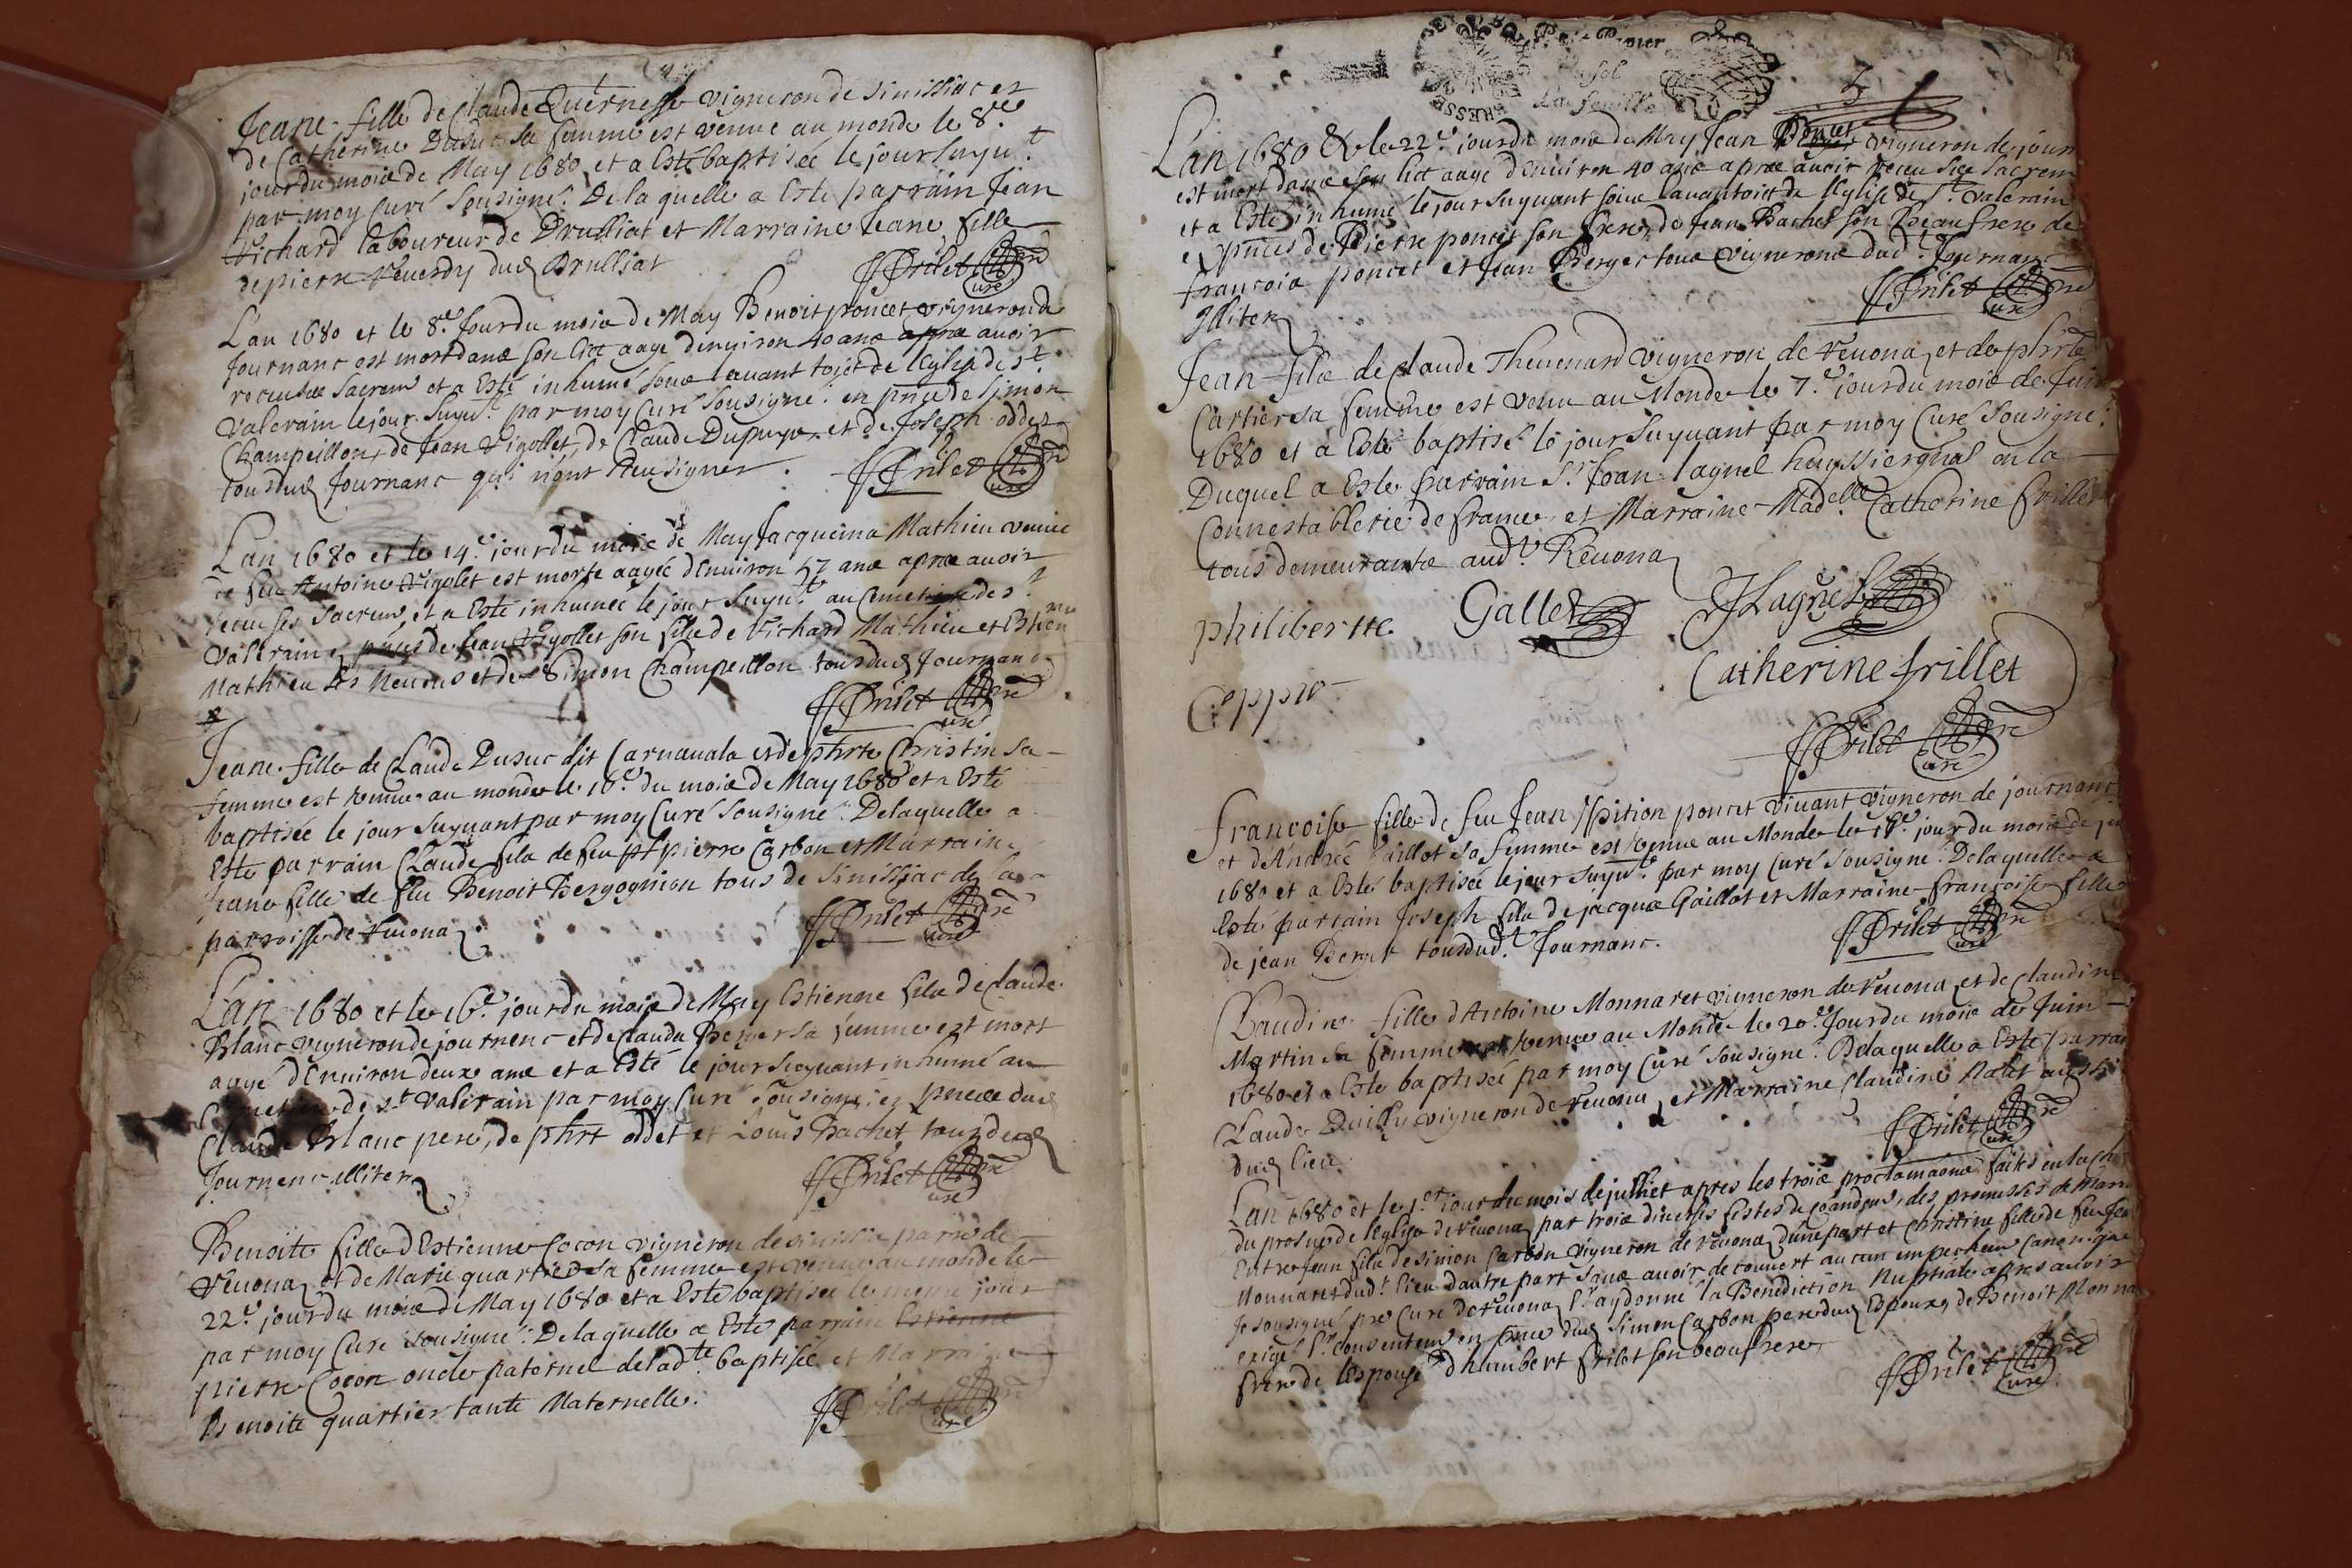 Jeane fille de Claude Quernesse vigneron de Sinissiac et
de Catherine Dusuc sa femme est venue au monde le 8.e
jour du mois de May 1680 et a Esté baptisée le jour suyu.t
par moy Curé Sousigné. De la quelle a Esté parrain Jean
Richard laboureur de Drulliat et Marraine Jeane fille
de pierre Reuerdy dud Brulliat
JPrilet pre
Curé
L'an 1680 et le 8.e Jour du mois de May Benoit poncet vigneron de
Journanc est mort dans son lict aagé denuiron 40 ans apres auoir
receu ses Sacrem et a Esté inhumé soubs lauant toict de leglise de St.
Valerain le jour suyu.t par moy Curé Sousigné. en pñce de Simon
Champeillon, de Jean Vigollet, de Claude Dupuys et de Joseph oddet
tous dud Journanc qui n'ont sceu signer.
JPrilet pre
Curé
L'an 1680 et le 14.e jour du mois de May Jacquema Mathieu veuue
de feu Antoine Vigolet est morte aagée d'Enuiron 57 ans apres auoir
receu ses Sacrem et a Esté inhumée le jour suyu.te au Cemetiere de St
Valerain pñces de Jean Vigollet son fils de Richard Mathieu et Estien
Mathieu ses Neueus et de Simon Champeillon tous dud Journanc
JPrilet pre
Curé
Jeane fille de Claude Dusuc dit Carnauala et de phrte Christin sa
femme est venue au monde le 16.e du mois de May 1680 et a Esté
baptisée le jour suyuant par moy Curé Sousigné. De laquelle a
Esté parrain Claude fils de feu pierre Carbon et Marraine
Jeane fille de feu Benoit Bergognion tous de Sinissiac de la
parroisse de Reuona
JPrilet pre
Curé
L'an 1680 et le 16.e jour du mois de May Estienne fils de Claude
Blanc vigneron de journenc et de Clauda Berger sa femme est mort
aagé d'Enuiron deux ans et a Esté le jour suyuant inhumé au
Cemetiere de St Valerain par moy Curé Sousigné, ez pences dud
Claude Blanc pere, de phrt oddet et Louis Bachet tous dud
Journenc illiter
JPrilet pre
Curé
Benoite fille d'Estienne Cocon vigneron de sinissia parr de
Reuona et de Marie quartier sa femme est venue au monde le
22.e jour du mois de May 1680 et a Esté baptisée le meme jour
par moy Curé Sousigné. De laquelle a Esté parrain Estienne
pierre Cocon oncle paternel de lad.te baptisée et Marraine
Benoite quartier tante Maternelle.
JPrilet pre
Curé
sol
La feuille
3
L'an 1680 & le 22.e jour du mois de May Jean Poncet vigneron de journ
est mort dans son lict aagé d'Enuiron 40 ans apres auoir receu ses Sacrem
et a Esté inhumé le jour suyuant soubs lauantoict de leglise de St. Valerain
ez pñces de Pierre poncet son frere, de Jean Bachet son Beaufrere de
francois poncet et Jean Berger tous vignerons dud.t Journanc
Illiter
JPrilet pre
Curé
Jean fils de Claude Theuenard vigneron de Reuona et de phrte
Cartier sa femme est venu au Monde le 7.e jour du mois de Juin
1680 et a Esté baptisé le jour suyuant par moy Curé Sousigné.
Duquel a Esté parrain Sr. Jean lagnel huyssier gñal en la
Connestablerie de france et Marraine Mad.elle Catherine frillet
tous demeurants aud.t Reuona
philiberte Gallet JLagnel
Catherine frillet
JPrilet pre
Curé
francoise fille de feu Jean poncet viuant vigneron de journanc
et d'Andrée Gaillot sa femme est venue au Monde le 18.e jour du mois de jui
1680 et a Esté baptisée le jour suyu.t par moy Curé Sousigné. De laquelle a
Esté parrain Joseph fils de jacques Gaillot et Marraine francoise fille
de jean Berger tous dud.t Journanc.
JPrilet pre
Curé
Claudine fille d'Antoine Monnaret vigneron de Reuona et de Claudine
Martin sa femme est venue au Monde le 20.e Jour du mois de Juin
1680 et a Esté baptisée par moy Curé Sousigné. De laquelle a Esté parrain
Claude Duilly vigneron de Reuona et Marraine Claudine Natet aussi
dud lieu.
JPrilet pre
Curé
L'an 1680 et le 1.er jour du mois de julliet apres les trois proclamaõns faites en la
du prosne de leglise de Reuona par trois diuerses festes de commandem, des promesses de Mari
Entre Jean fils de simon Carbon vigneron de Reuona d'une part et Christine fille de feu Jea
Monnaret dud.t lieu d'autre part sans auoir decouuert aucun empechem Canonique
Je sousigné pre Curé de Reuona l.r ay donné la Benediction Nuptiale apres auoir
exigé l.r consentem en pñce dud Simon Carbon pere dud Espoux, de Benoit Monna
frere de lespouse d'humbert frilet son beaufrere
JPrilet pre
Curé